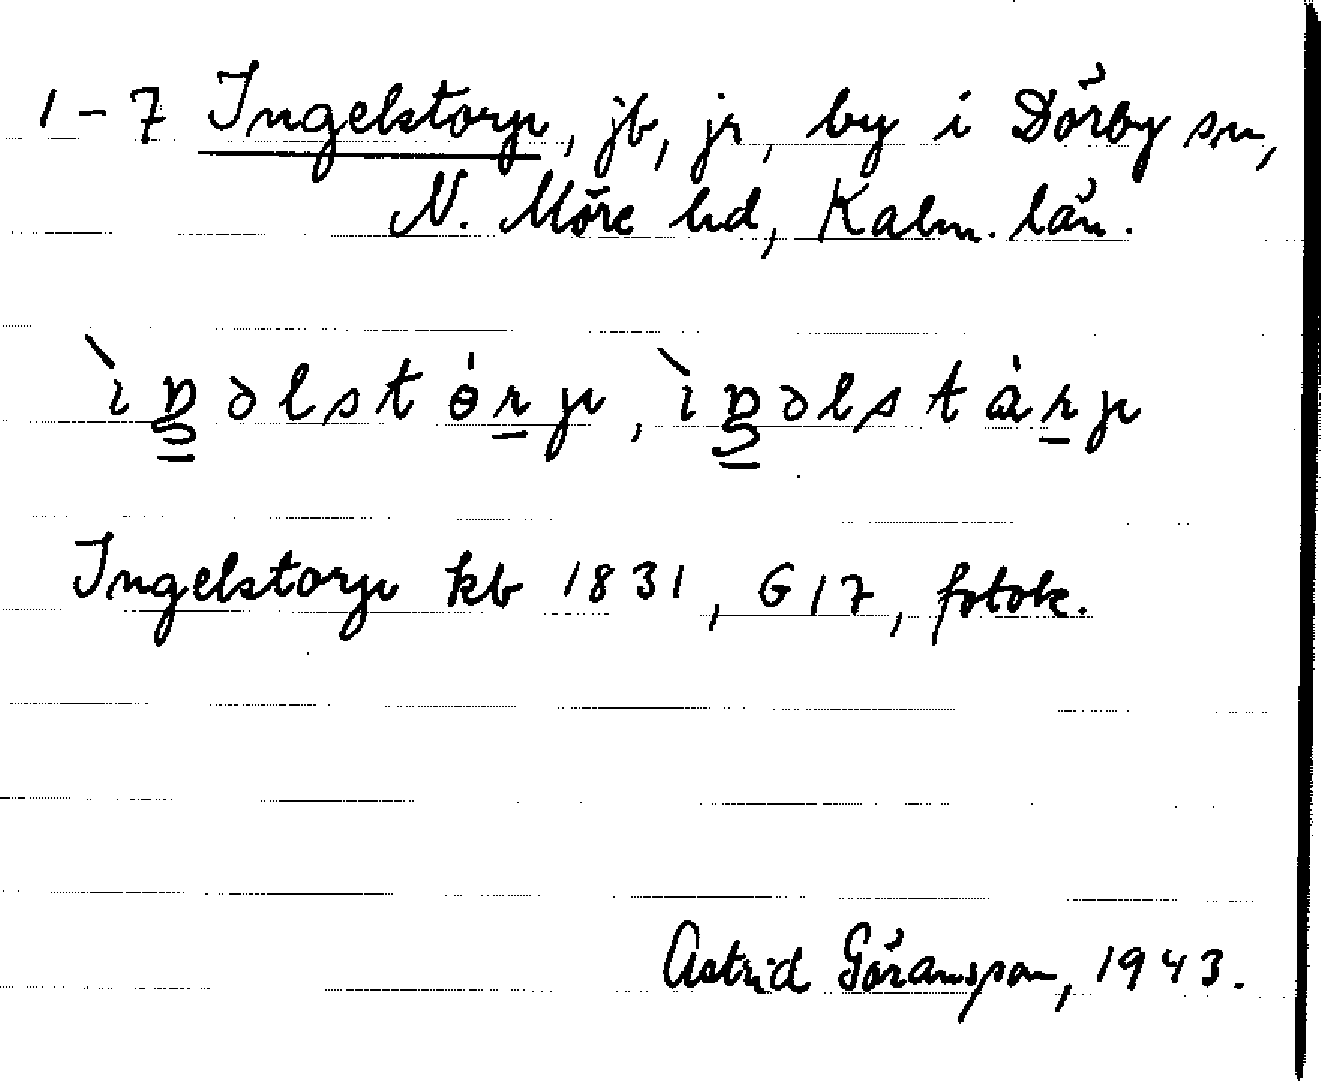 1-7 Ingelstorp, jb, jr, by i Dörby sn,
N. Möre hd, Kalm. län.
ìŋəlstɵ́rp, ìŋəlstárp
Ingelstorp kb 1831, G17, fotok.
Astrid Göransson, 1943.